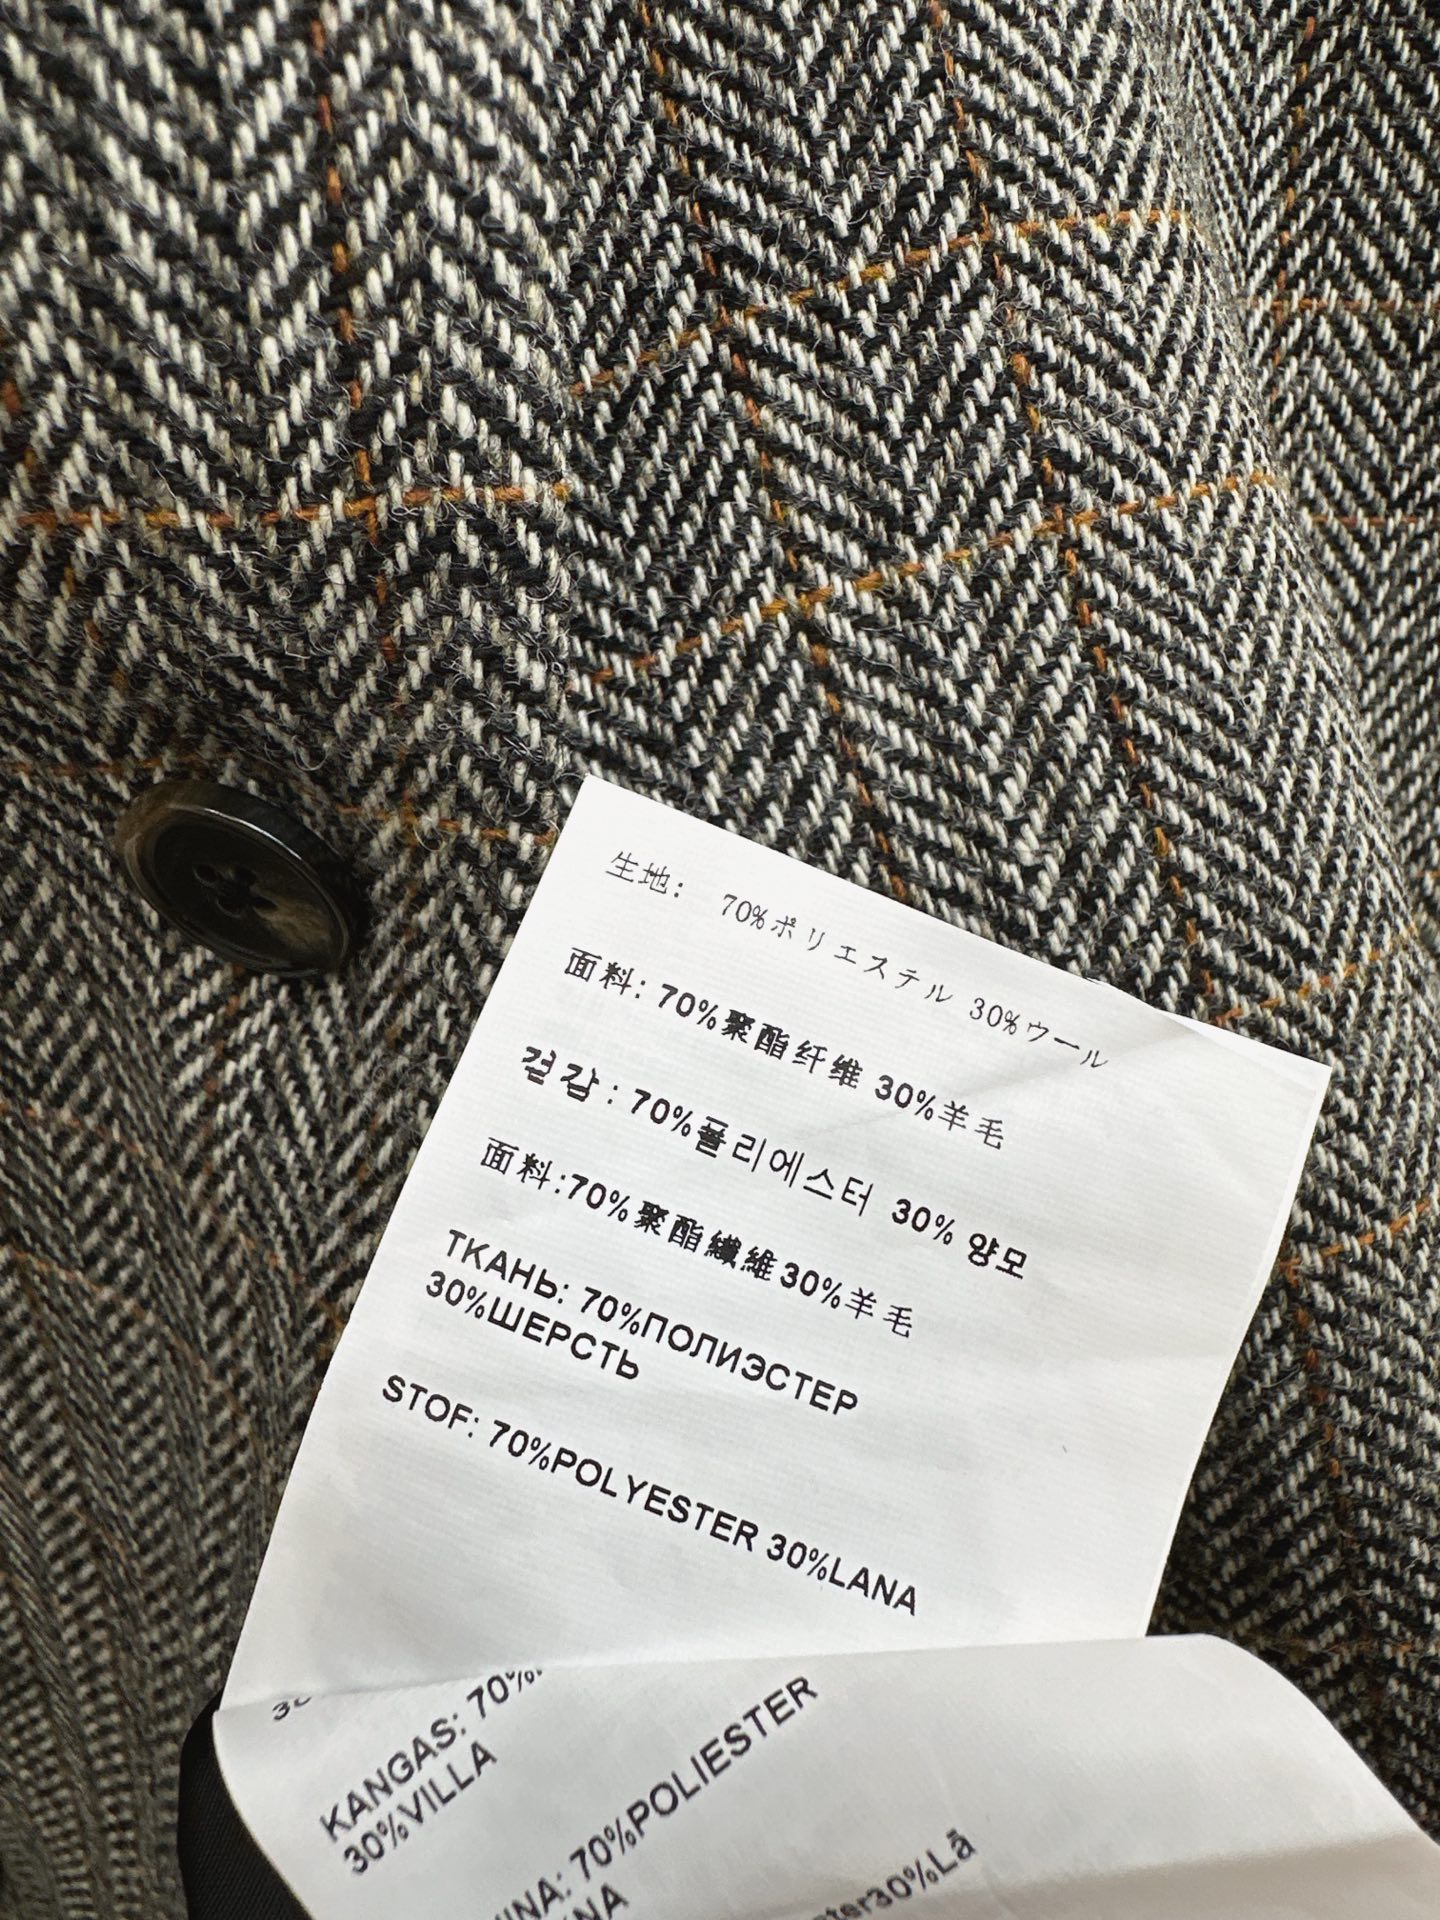 生地: 70%ポリエステル 30%ウール
面料: 70%聚酯纤维 30%羊毛
겉감: 70%폴리에스터 30% 양모
面料:70%聚酯纖維30%羊毛
ТКАНЬ: 70%ПОЛИЭСТЕР
30%ШЕРСТЬ
STOF: 70%POLYESTER 30%LANA
KANGAS: 70%
30%VILLA
INA: 70%POLIESTER
NA
ster30%Lã